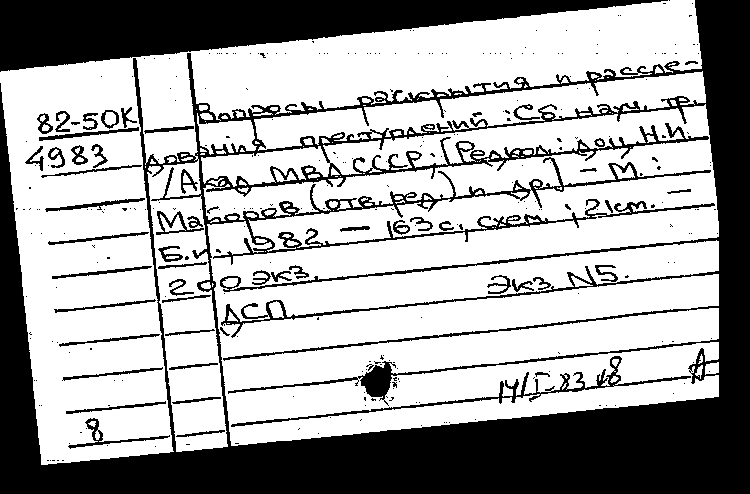 82-50К
4983
Вопросы раскрытия и рассле-
дования преступлений: Сб. науч. тр.
/Акад. МВД СССР; [Редкол.: доц. Н.И.
Маборов (отв. ред.) и др.] - М.:
Б.и., 1982. - 163 с., схем.; 21 см. -
200 экз.
ДСП. Экз N5.
14/I-83
8